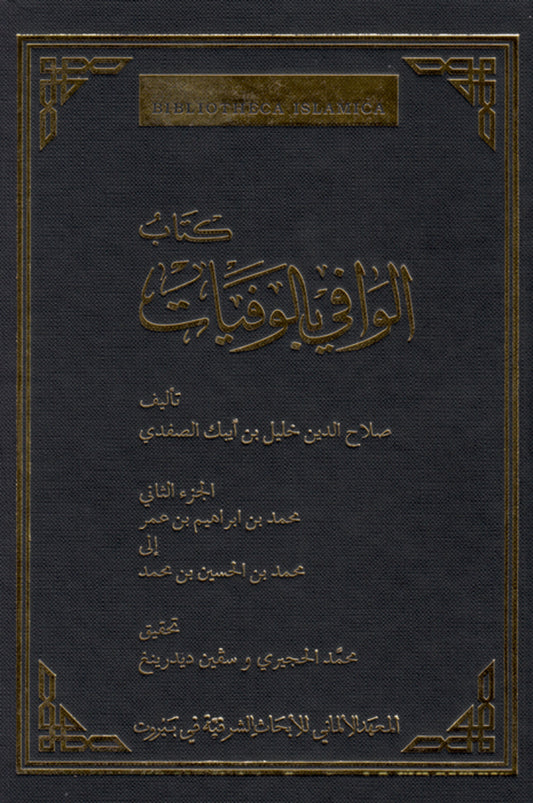 BIBLIOTHECA ISLAMICA
كتَابُ
الوَافي بالوَفيَات
تأليف
صلاح الدين خليل بن أيبك الصفدي
الجزء الثاني
محمد بن ابراهيم بن عمر
إلى
محمد بن الحسين بن محمد
تحقيق
محمَّد الحجيري و سڤين ديدرينغ
المعهد الالماني للأبحاث الشرقية في بيروت